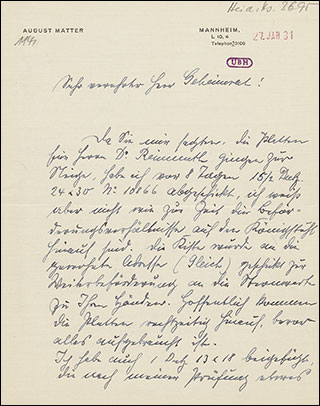 Heid. Hs. 3695
AUGUST MATTER
MANNHEIM,
L 10, 4
Telephon
27. JAN 31
UBH
Sehr verehrter Herr Geheimrat!
Da Sie mir sagten, die Platten
für Herrn Dr Reinmuth gingen zur
Neige, habe ich vor 8 Tagen 15½ Dutz.
24x30 N: 10866 abgeschickt, ich weiß
aber nicht wie zur Zeit die Beför-
derungsverhältnisse auf den Königstuhl
hinauf sind. Die Kiste wurde an die
gewohnte Adresse (Gleich) geschickt zur
Weiterbeförderung an die Sternwarte
zu Ihren Händen. Hoffentlich kommen
die Platten rechtzeitig hinauf, bevor
alles aufgebraucht ist.
Ich habe auch 1 Dtz 13x18 beigefügt,
die nach meiner Prüfung etwas